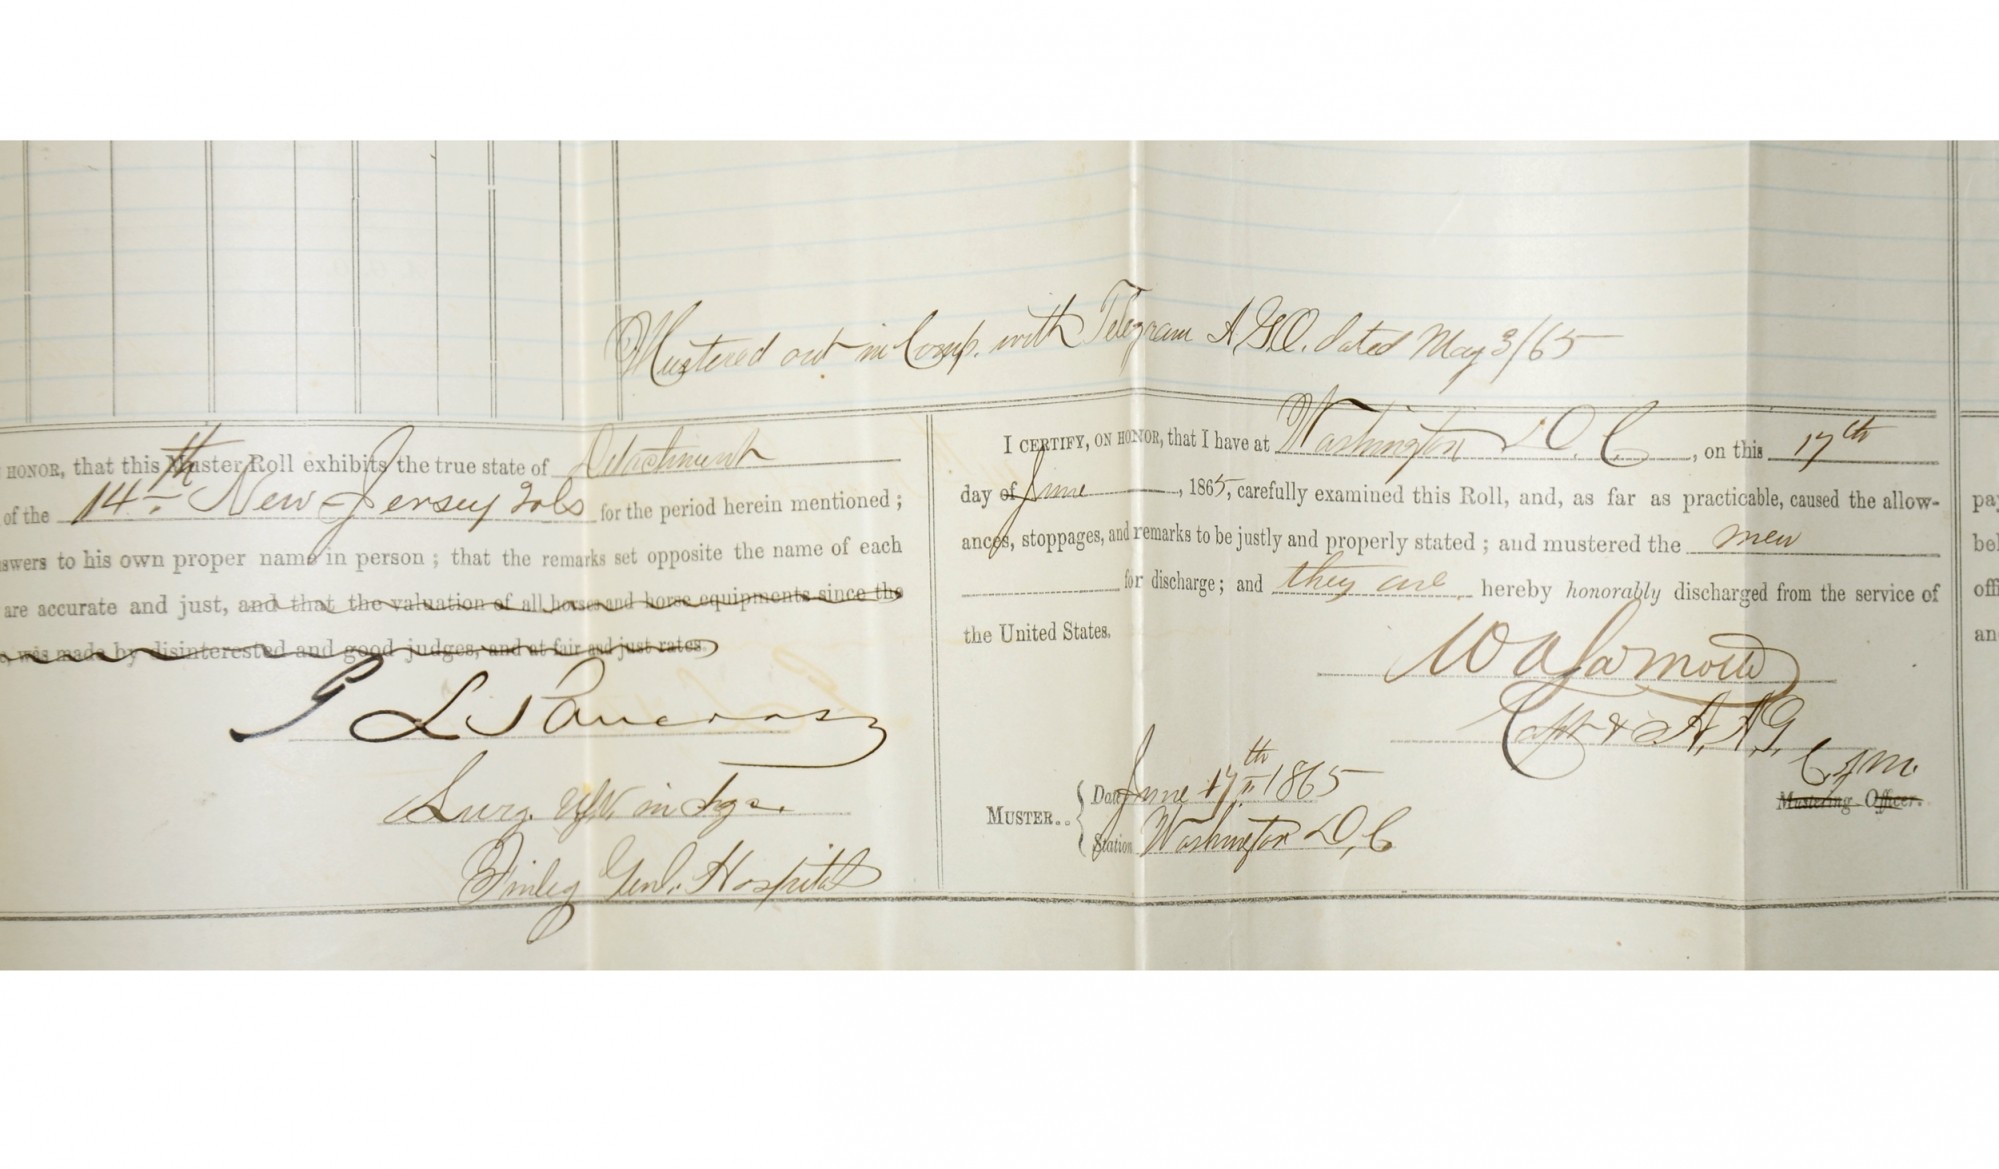 Mustered out in Comp. with Telegram A.G.O. dated May 3/65
HONOR, that this Muster Roll exhibits the true state of Detachment
of the 14th New Jersey Vols for the period herein mentioned ;
swers to his own proper name in person ; that the remarks set opposite the name of each
are accurate and just, and that the valuation of all horses and horse equipments since the
was made by disinterested and good judges, and at fair and just rates.
G L Pancoast
Surg. U.S.V. in chge.
Finley Genl. Hospital
I CERTIFY, ON HONOR, that I have at Washington D. C. , on this 17th
day of June , 1865, carefully examined this Roll, and, as far as practicable, caused the allow-
ances, stoppages, and remarks to be justly and properly stated ; and mustered the men
for discharge ; and they are hereby honorably discharged from the service of
the United States.
Capt & A. A. G.
C. of M.
Mustering Officer.
MUSTER.. { Date June 17th 1865
Station Washington D. C.
pay
bel
offi
an